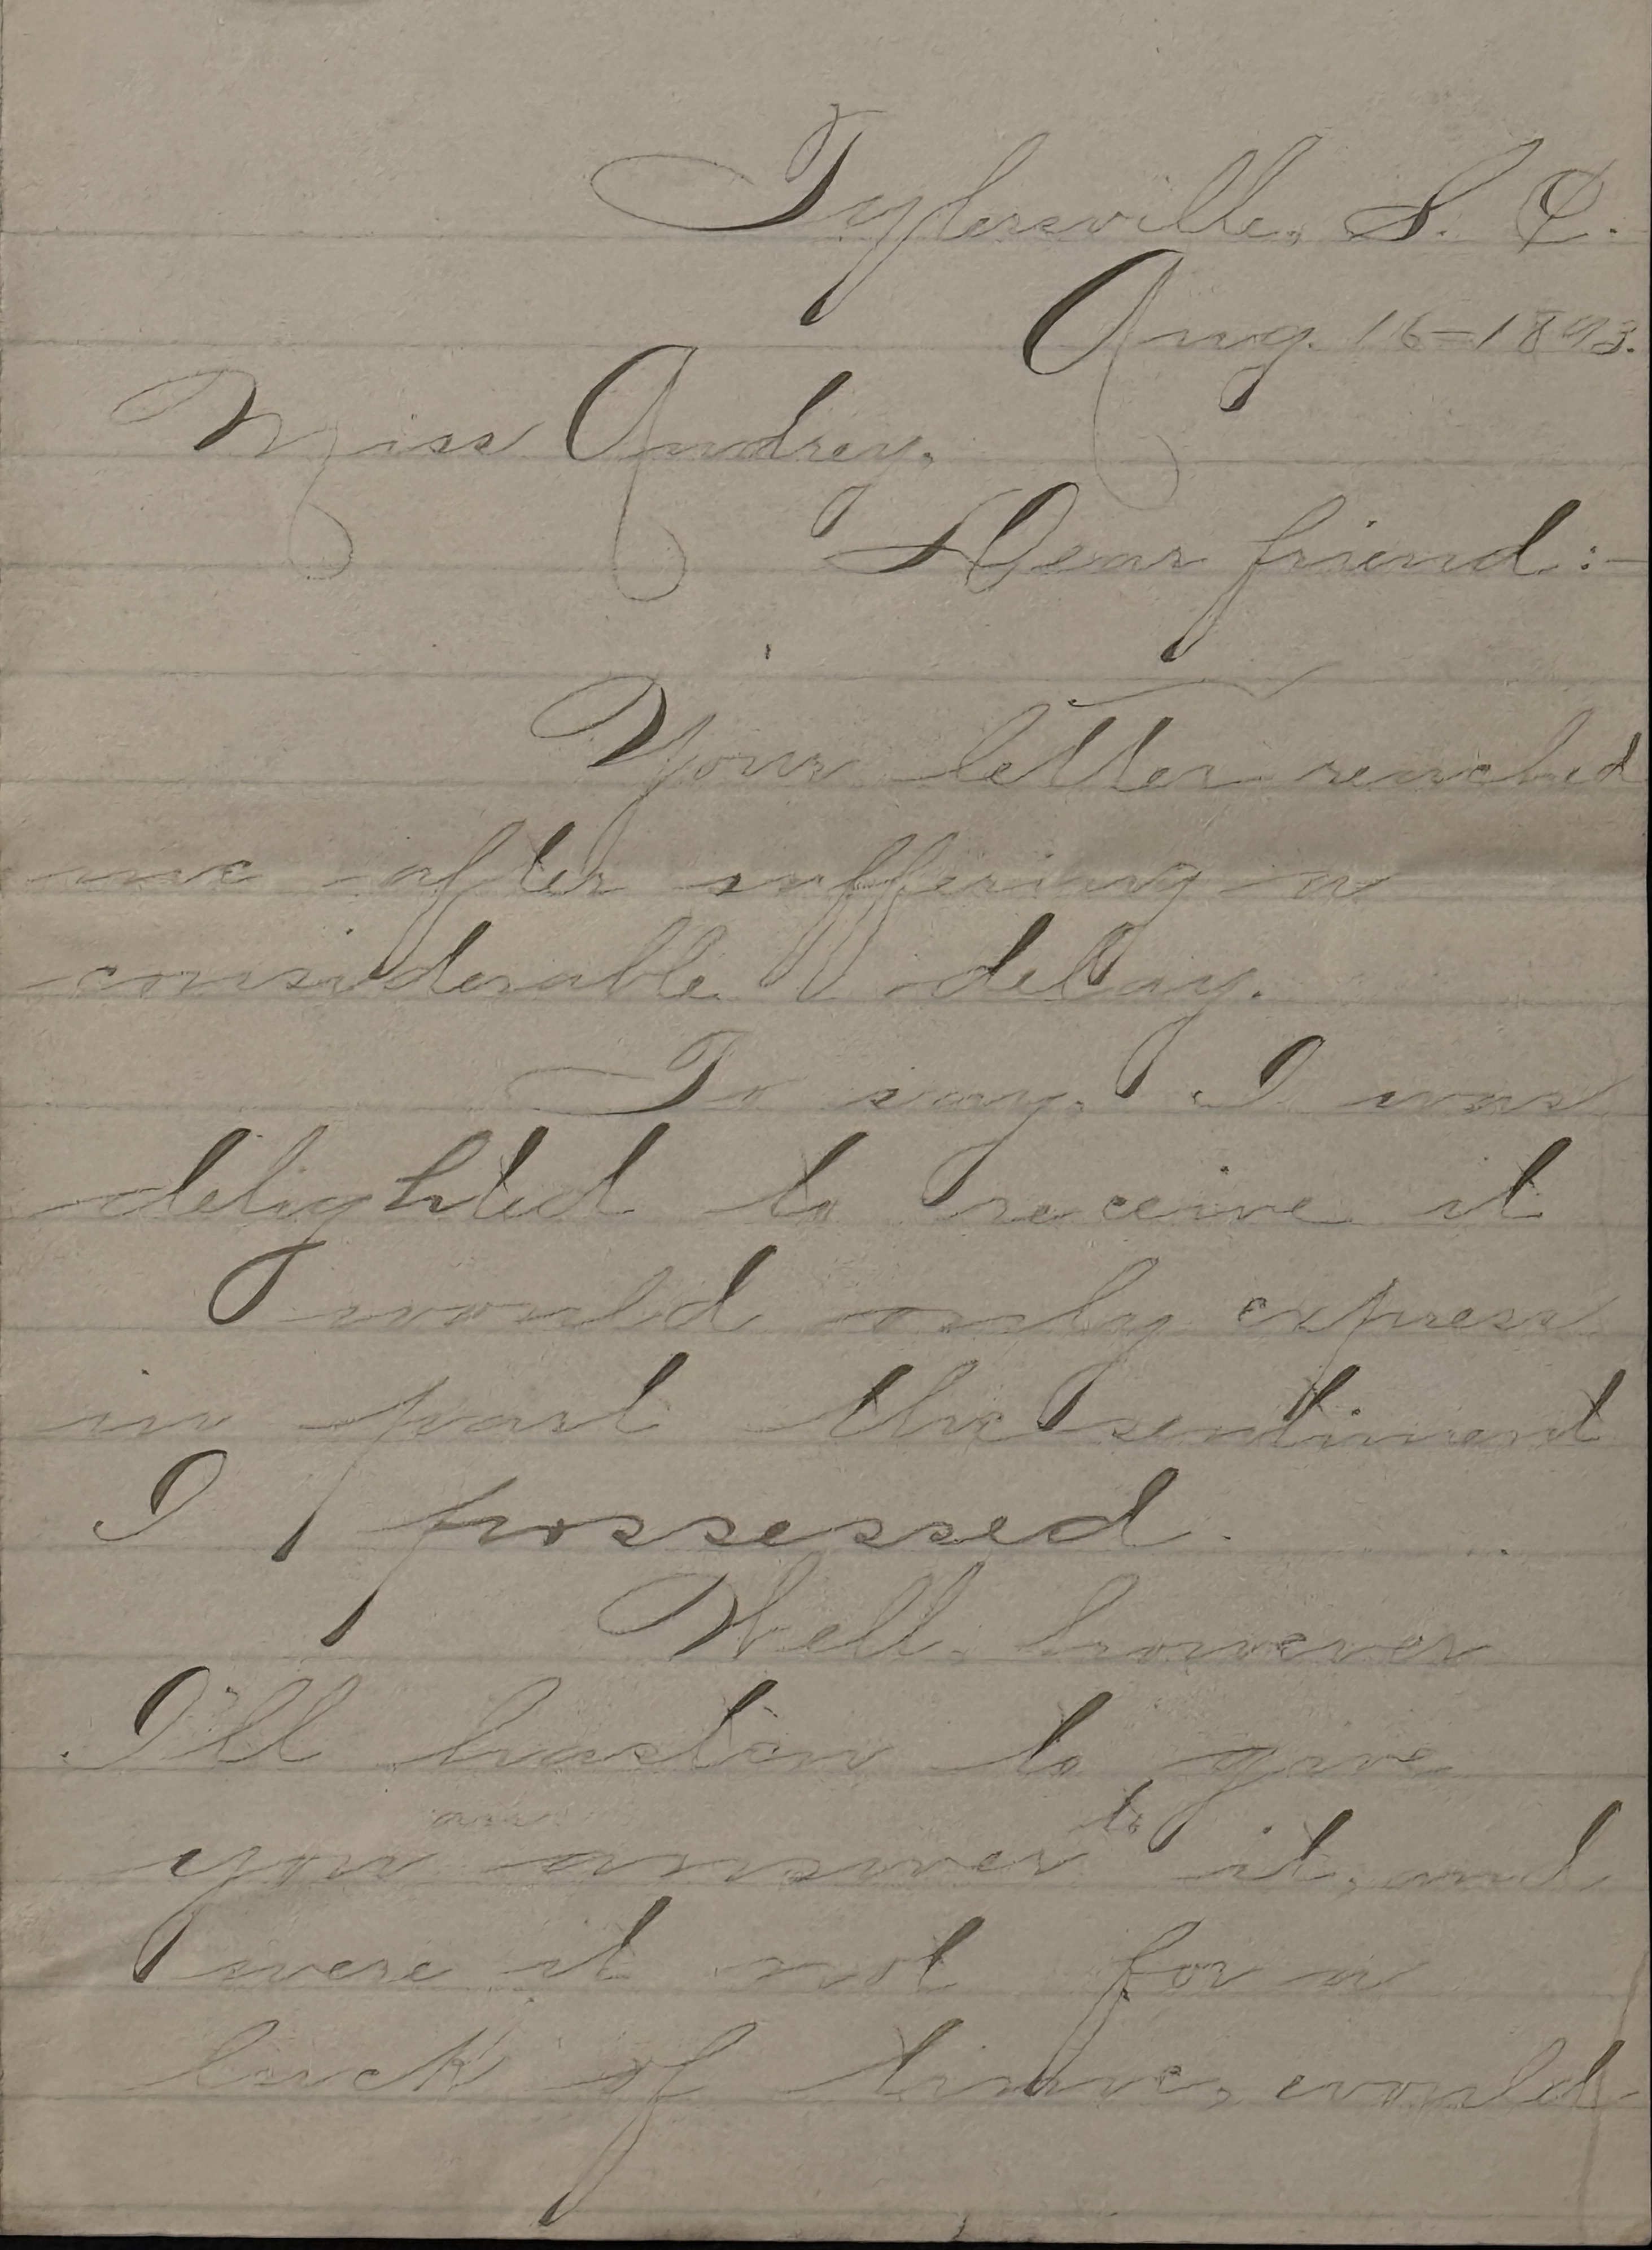 Tylersville, S. C.
Aug. 16-1893.
Miss Audrey,
Dear friend:-
Your letter reached
me after suffering a
considerable delay.
To say, I was
delighted to receive it
would only express
in part the sentiment
I possessed.
Well, however
I'll hasten to give
an to
you answer it, and
were it not for a
lack of time, would